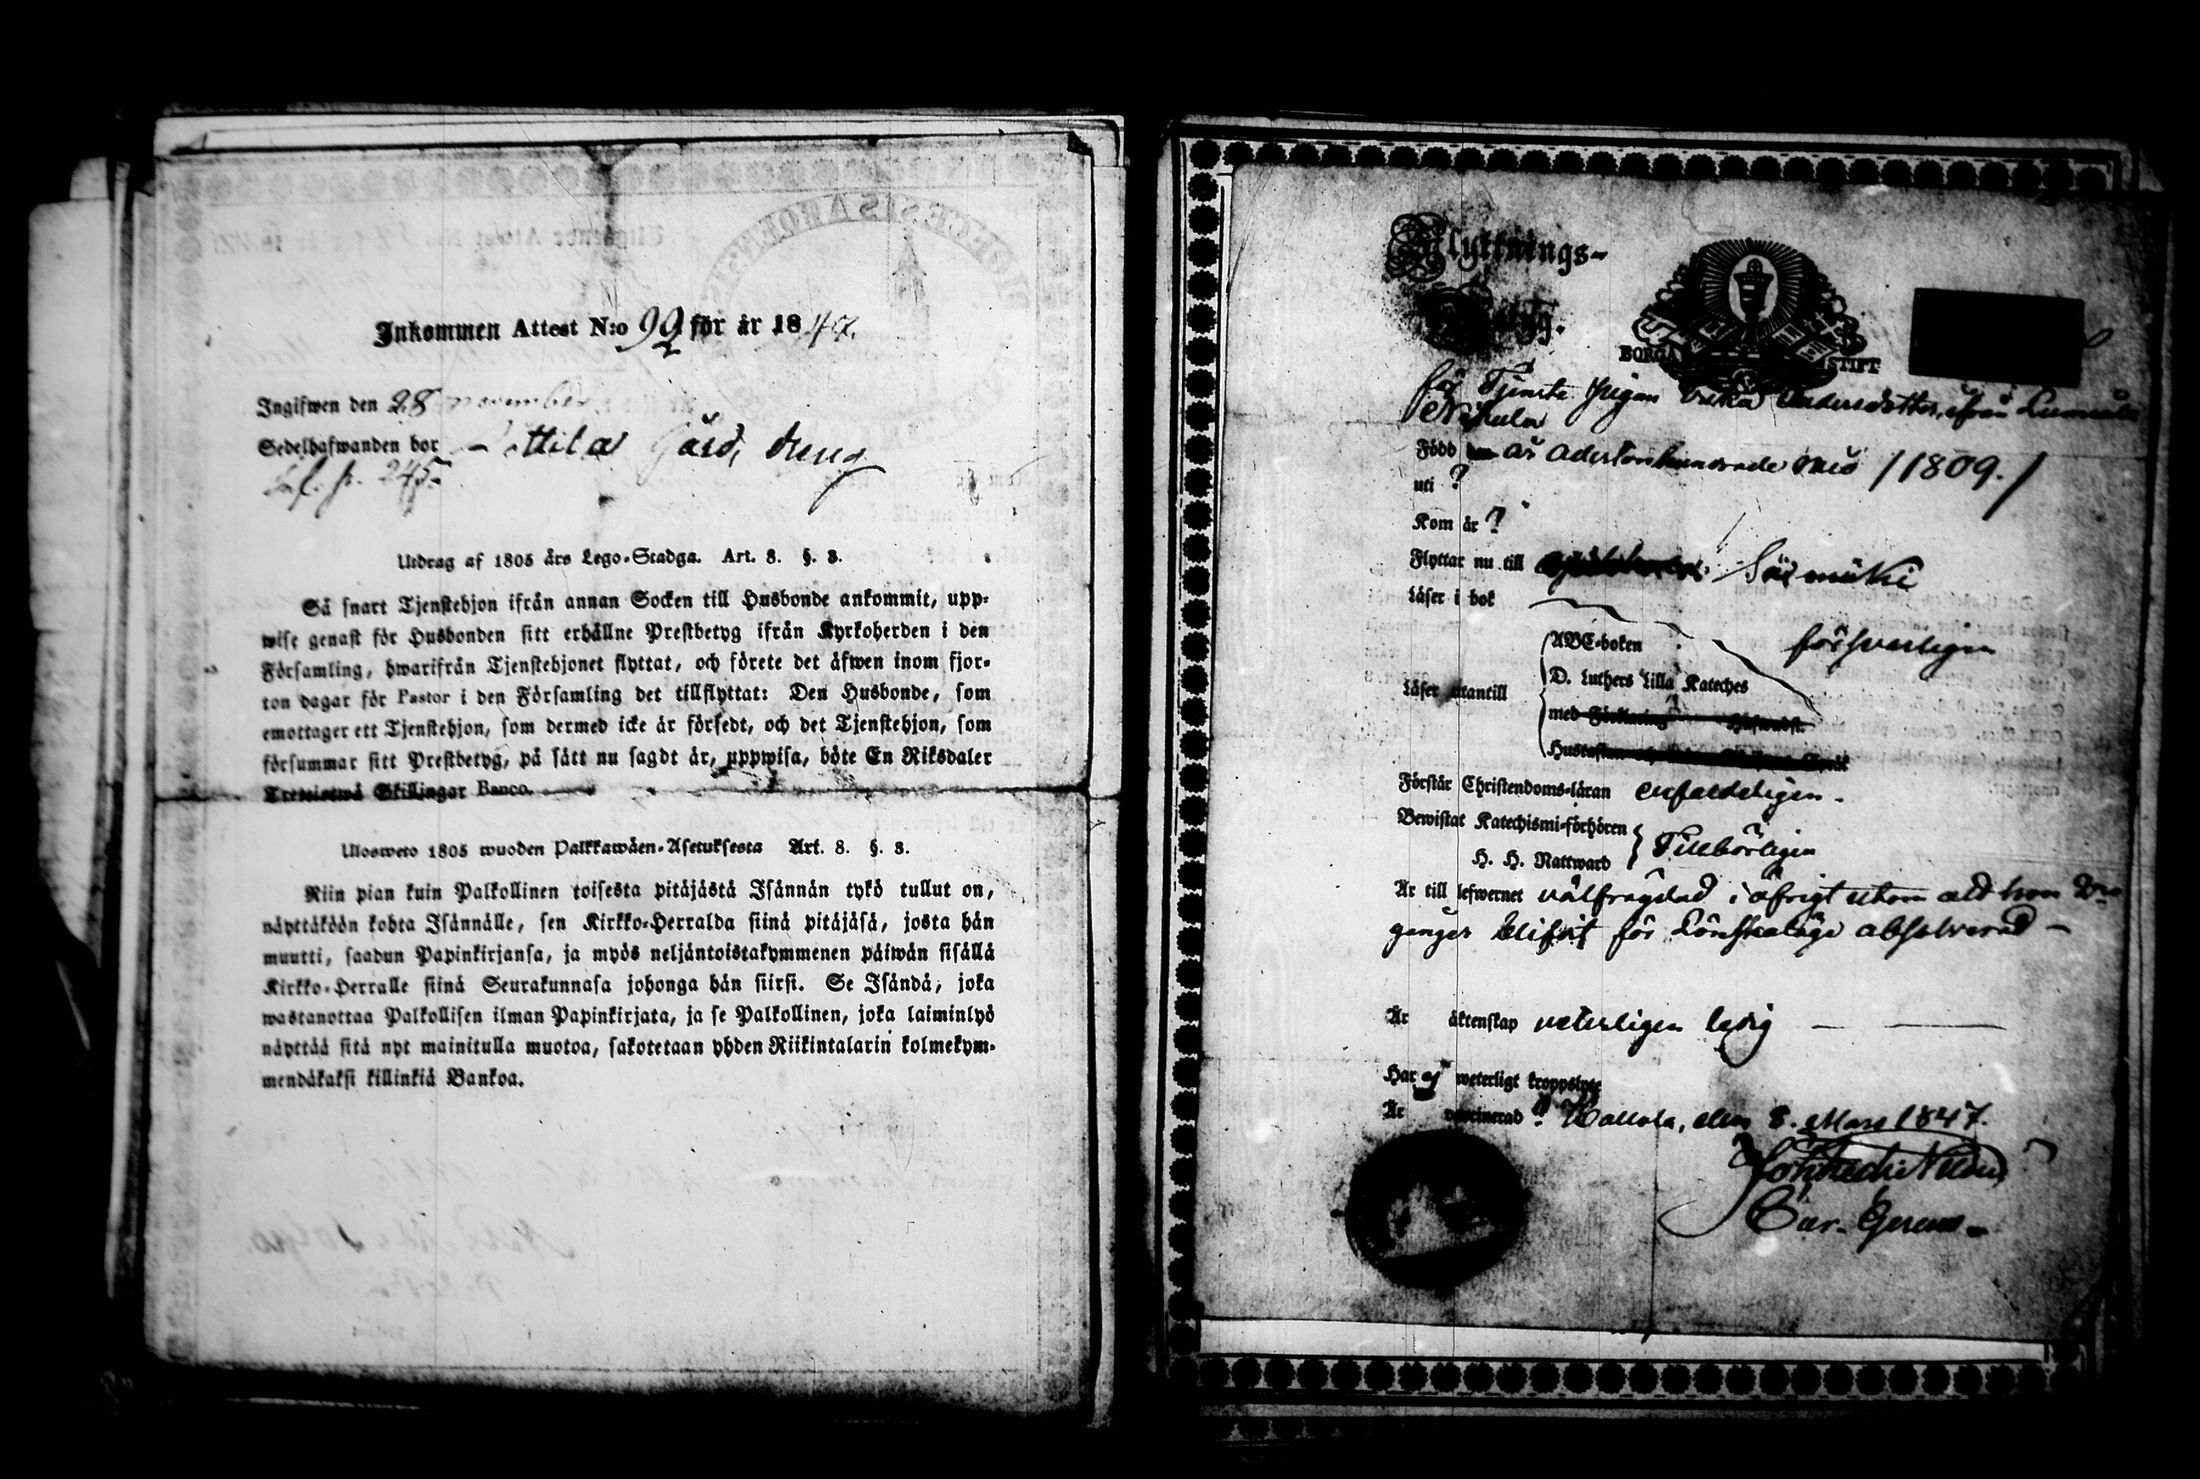 Inkommen Attest N:o 99 för år 1847.
Ingifwen den 28 november
Sedelhafwanden bor Attila Gård, dreng
Inf. p. 245.
Utdrag af 1805 års Lego-Stadga. Art. 8. §. 3.
Så snart Tjenstehjon ifrån annan Socken till Husbonde ankommit, upp-
wise genast för Husbonden sitt erhållne Prestbetyg ifrån Kyrkoherden i den
Församling, hwarifrån Tjenstehjonet flyttat, och förete det äfwen inom fjor-
ton dagar för Pastor i den Församling det tillflyttat: Den Husbonde, som
emottager ett Tjenstehjon, som dermed icke är försedt, och det Tjenstehjon, som
försummar sitt Prestbetyg, på sätt nu sagdt är, uppwisa, böte En Riksdaler
Trettiotwå Skillingar Banco.
Ulosweto 1805 wuoden Palkkawäen-Asetuksesta Art. 8. §. 3.
Niin pian kuin Palkollinen toisesta pitäjästä Isännän tykö tullut on,
näyttäköön kohta Isännälle, sen Kirkko-Herralda siinä pitäjäsä, josta hän
muutti, saadun Papinkirjansa, ja myös neljäntoistakymmenen päiwän sisällä
Kirkko-Herralle siinä Seurakunnasa johonga hän siirsi. Se Isändä, joka
wastanottaa Palkollisen ilman Papinkirjata, ja se Palkollinen, joka laiminlyö
näyttää sitä nyt mainitulla muotoa, sakotetaan yhden Riikintalarin kolmekym-
mendäkaksi killinkiä Bankoa.
Flyttnings-
Betyg.
BORGÅ STIFT
för Tjenste pigan Ulrika Andersdotter, ifrån
Född år adertonhundrade nio /1809./
uti ?
Kom år ?
Flyttar nu till Särmäki
Läser i bok
ABC-boken försvarligen
Läser utantill D. Luthers Lilla Kateches
med Förklaring Husandst.
Förstår Christendoms-läran enfaldeligen.
Bewistat Katechismi-förhören
H. H. Nattward Tillbörligen
Är till lefwernet välfrägdad i öfrigt utom att hon 2ne
gånger blifvit för Lönskaläge absolverad —
Är äktenskap veterligen ledig —
Har ej weterligt kroppslyte
Är vaccinerad ? Hollola, den 8. Mars 1847.